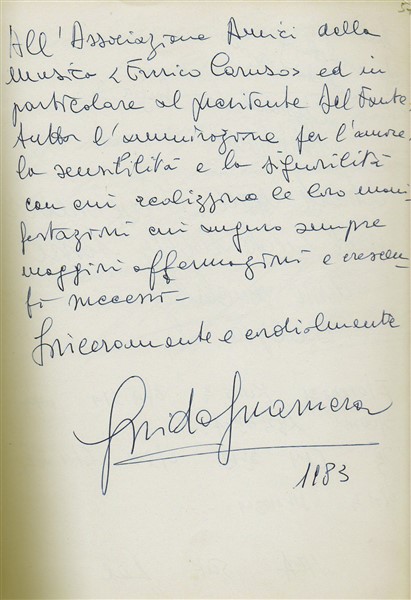 All'Associazione Amici della
Musica "Enrico Caruso" ed in
particolare al presidente Del Fante
tutta l'ammirazione per l'amore
la sensibilità e la signorilità
con cui realizzano le loro mani-
festazioni cui auguro sempre
maggiori affermazioni e crescen-
ti successi -
Sinceramente e cordialmente
Guido Guarnera
1983